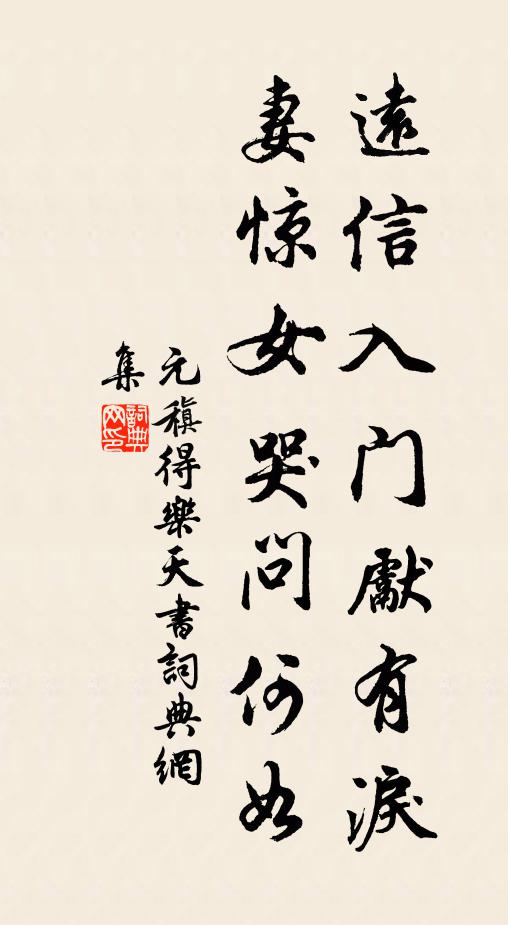 遠信入門獻有淚
妻惊女哭問何如
元稹得樂天書詞典網
集
詞典
网印